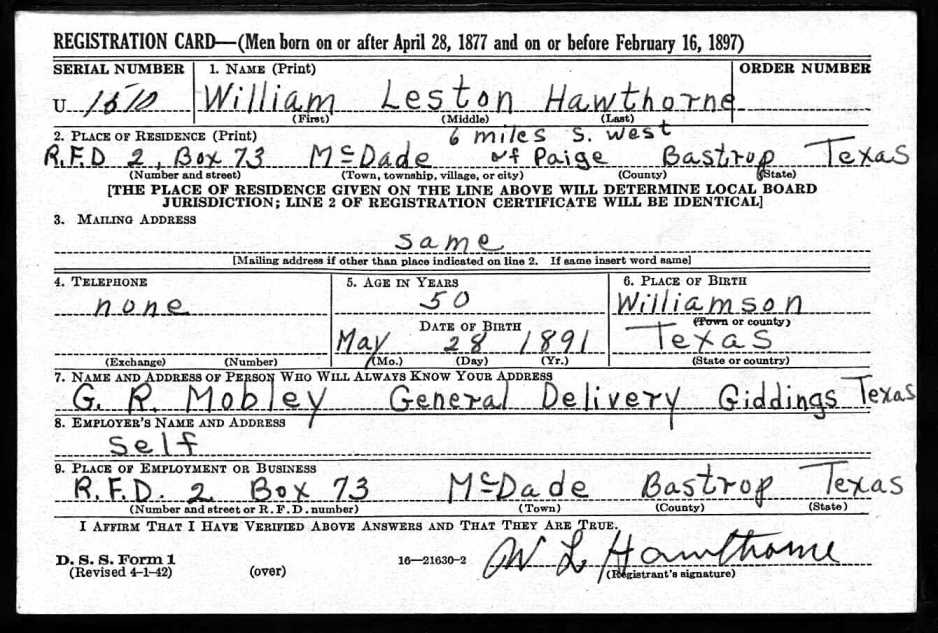 REGISTRATION CARD—(Men born on or after April 28, 1877 and on or before February 16, 1897)
SERIAL NUMBER 1. NAME (Print) ORDER NUMBER
U 1510 William Leston Hawthorne
(First) (Middle) (Last)
2. PLACE OF RESIDENCE (Print) 6 miles S. West
R.F.D 2, Box 73 McDade of Paige Bastrop Texas
(Number and street) (Town, township, village, or city) (County) (State)
[THE PLACE OF RESIDENCE GIVEN ON THE LINE ABOVE WILL DETERMINE LOCAL BOARD
JURISDICTION; LINE 2 OF REGISTRATION CERTIFICATE WILL BE IDENTICAL]
3. MAILING ADDRESS
same
[Mailing address if other than place indicated on line 2. If same insert word same]
4. TELEPHONE 5. AGE IN YEARS 6. PLACE OF BIRTH
none 50 Williamson
DATE OF BIRTH (Town or county)
May 28 1891 Texas
(Exchange) (Number) (Mo.) (Day) (Yr.) (State or country)
7. NAME AND ADDRESS OF PERSON WHO WILL ALWAYS KNOW YOUR ADDRESS
G. R. Mobley General Delivery Giddings Texas
8. EMPLOYER'S NAME AND ADDRESS
Self
9. PLACE OF EMPLOYMENT OR BUSINESS
R.F.D. 2 Box 73 McDade Bastrop Texas
(Number and street or R. F. D. number) (Town) (County) (State)
I AFFIRM THAT I HAVE VERIFIED ABOVE ANSWERS AND THAT THEY ARE TRUE.
D. S. S. Form 1 16—21630-2 W L Hawthorne
(Revised 4-1-42) (over) (Registrant's signature)